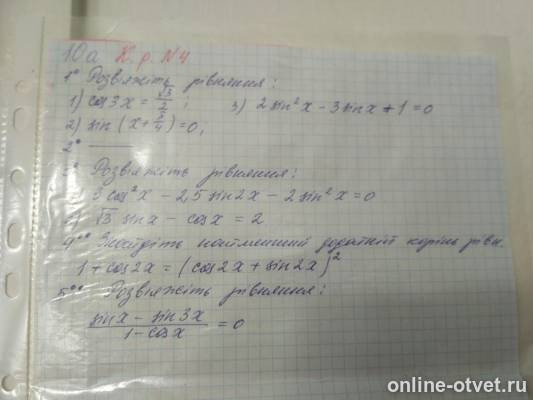 10а К.р. №4
1° Розв'яжіть рівняння:
1) cos 3x = √3/2; 3) 2 sin²x - 3 sin x + 1 = 0
2) sin (x + π/4) = 0;
2° ——
3° Розв'яжіть рівняння:
3 cos²x - 2,5 sin 2x - 2 sin²x = 0
2) √3 sin x - cos x = 2
4** Знайдіть найменший додатній корінь рівн.
1 + cos 2x = (cos 2x + sin 2x)²
5** Розв'яжіть рівняння:
(sin x - sin 3x)/(1 - cos x) = 0
online-otvet.ru